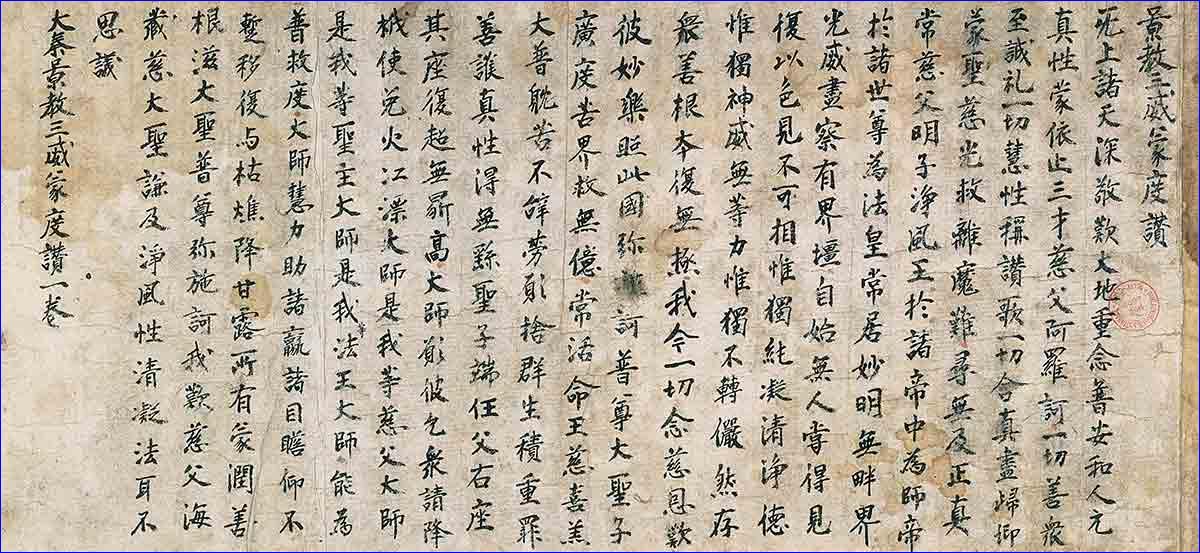 景教三威蒙度讚
无上諸天深敬歎大地重念普安和人元
真性蒙依止三才慈父阿羅訶一切善眾
至誠礼一切慧性稱讚歌一切含真盡歸仰
蒙聖慈光救離魔難尋無及正真
常慈父明子淨風王於諸帝中為師帝
於諸世尊為法皇常居妙明無畔界
光威盡察有界壃自始無人嘗得見
復以色見不可相惟獨純凝清淨德
惟獨神威無等力惟獨不轉儼然存
眾善根本復無極我今一切念慈恩歎
彼妙樂照此國弥訶普尊大聖子
廣度苦界救無億常活命王慈喜羔
大普躭苦不辞勞願捨群生積重罪
善護真性得無繇聖子端任父右座
其座復超無鼎高大師願彼乞眾請降
栰使免火江漂大師是我等慈父大師
是我等聖主大師是我法王大師能為
普救度大師慧力助諸羸諸目瞻仰不
蹔移復与枯燋降甘露所有蒙潤善
根滋大聖普尊弥施訶我歎慈父海
藏慈大聖謙及淨風性清凝法耳不
思議
大秦景教三威蒙度讚一卷。